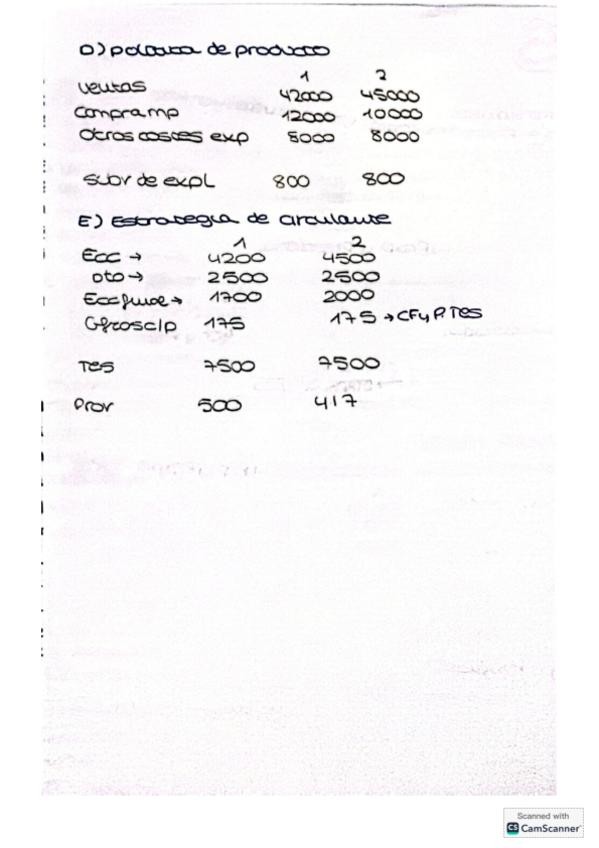 D) política de producto
1 2
Ventas 42000 45000
Compra mp 12000 10000
Otros costes exp 5000 8000
Subv de expl 800 800
E) Estrategia de circulante
1 2
Ecc → 4200 4500
Dto → 2500 2500
Ecc fuve → 1700 2000
Gfros c/p 175 175 → CF y P. Tes
Tes 7500 7500
Prov 500 417
Scanned with
CS CamScanner